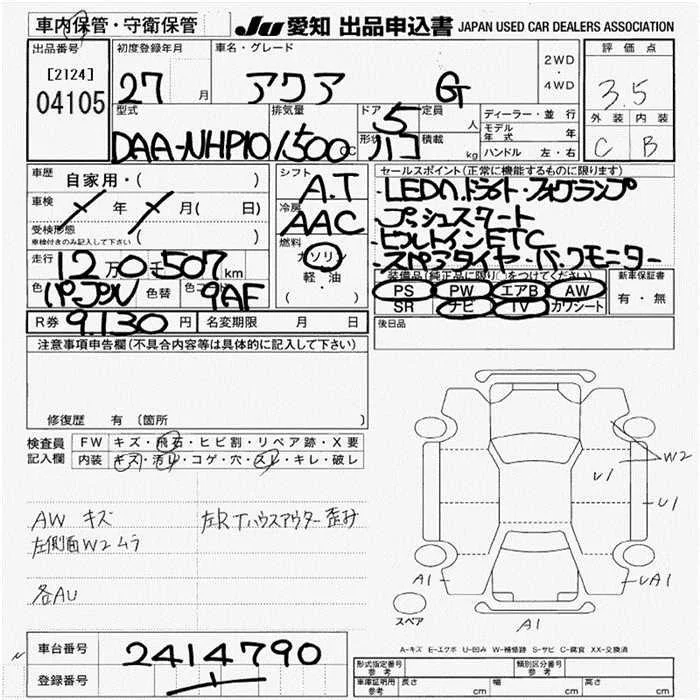 車内保管・守衛保管
JU 愛知 出品申込書 JAPAN USED CAR DEALERS ASSOCIATION
出品番号
[2124]
04105
初度登録年月
27 月
車名・グレード
アクア G
2WD
・
4WD
評価点
3.5
外装 内装
C B
型式
DAA-NHP10
排気量
1500 CC
ドア 5
形状 ハコ
定員 人
積載 kg
ディーラー・並行
モデル年式 年
ハンドル 左・右
車歴
自家用・( )
車検 年 月( 日)
受検形態
車検付きのみ記入して下さい ( )
走行
120,507 km
万 千
色 パープル 色替 色コード 9AF
シフト
A.T
冷房
AAC
燃料
ガソリン
軽・油
( )
セールスポイント(正常に機能するものに限ります)
・LEDヘッドライト・フォグランプ
・プッシュスタート
・ビルトインETC
・スペアタイヤ・バックモニター
装備品(純正品に限り○をつけてください)
PS PW エアB AW
SR ナビ TV カワシート
新車保証書
有・無
R券 9,130 円 名変期限 月 日
後日品
注意事項申告欄(不具合内容等は具体的に記入して下さい)
修復歴 有 (箇所 )
検査員
記入欄
FW キズ・飛石・ヒビ割・リペア跡・X要
内装 キズ・汚レ・コゲ・穴・スレ・キレ・破レ
AW キズ
左側面W2ムラ
左Rﾀｲﾔﾊｳｽアウター歪み
各AU
W2
U1
U1
A1
UA1
A1
スペア
A-キズ E-エクボ U-凹み W-補修跡 S-サビ C-腐食 XX-交換済
車台番号
2414790
登録番号
形式指定番号
参考
類別区分番号
参考
車庫証明用
参考
長さ cm 幅 cm 高さ cm